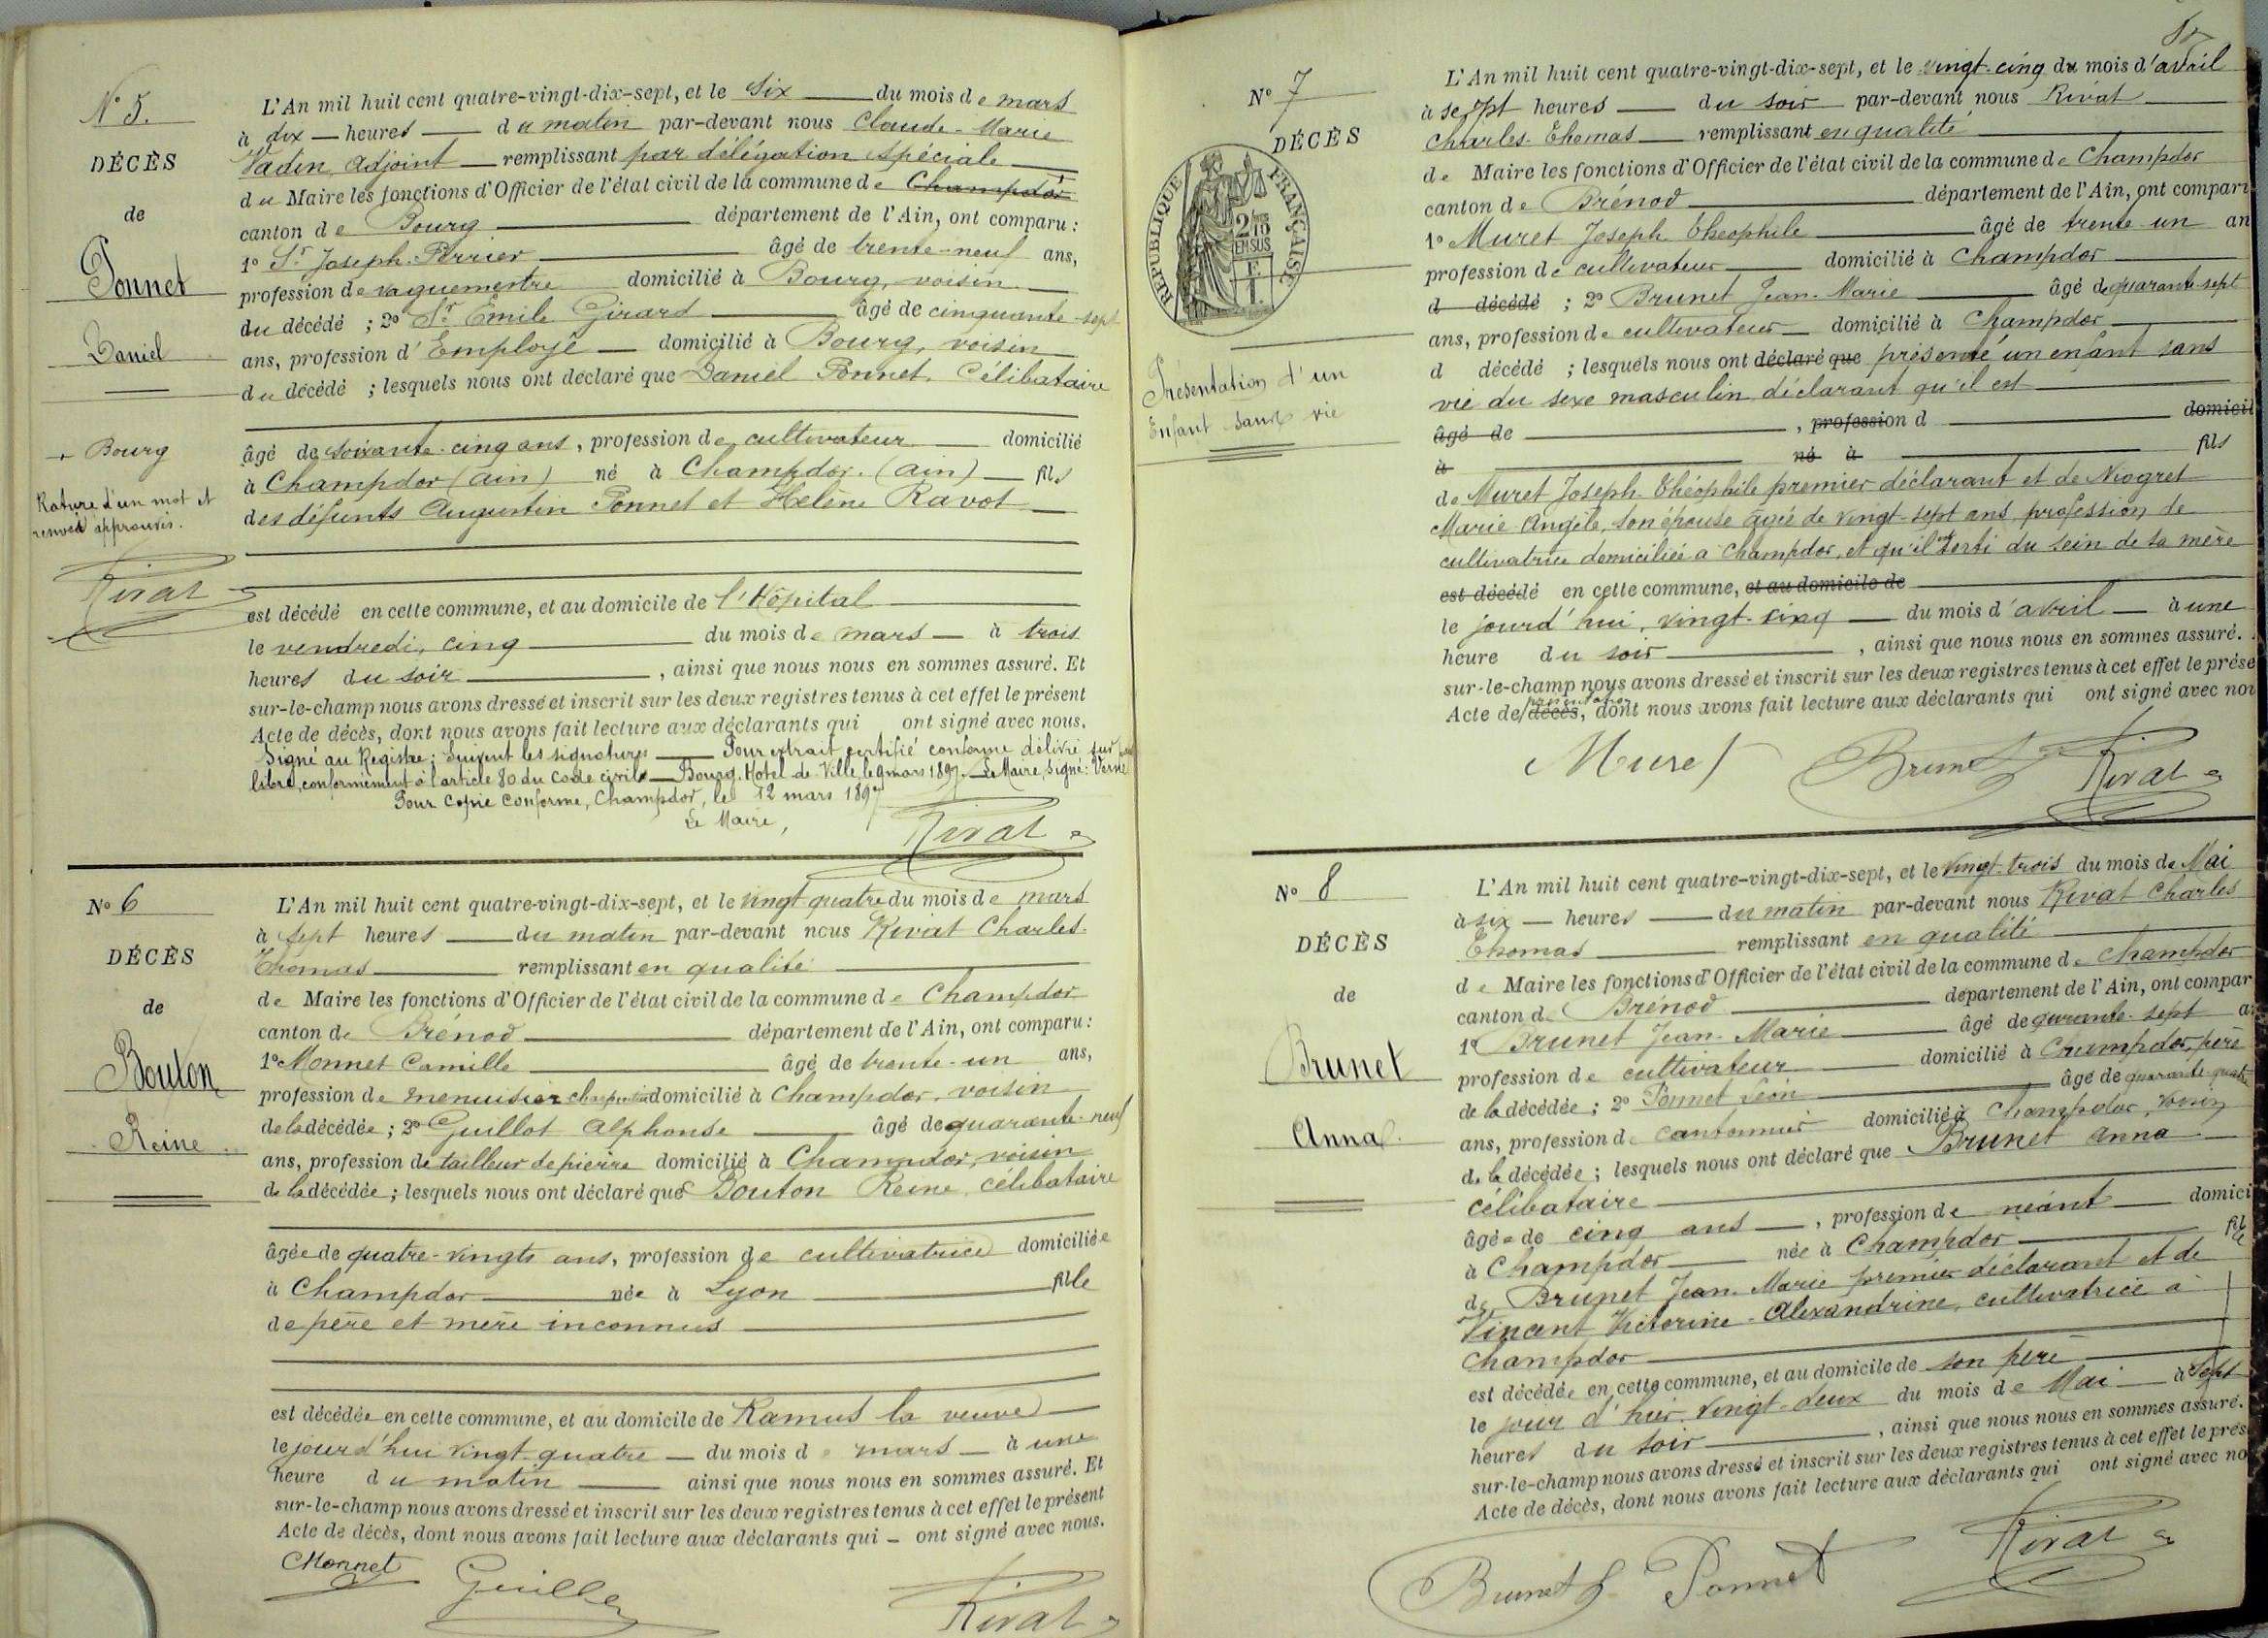 N° 5.
DÉCÈS
de
Ponnet
Daniel
+ Bourg
Rature d'un mot et
renvoi approuvés.
Rivat
L'An mil huit cent quatre-vingt-dix-sept, et le six du mois de mars
à dix heures du matin par-devant nous Claude-Marie
Vadin, adjoint remplissant par délégation spéciale
du Maire les fonctions d'Officier de l'état civil de la commune de Champdor
canton de Bourg département de l'Ain, ont comparu :
1° Sr Joseph Perrier âgé de trente-neuf ans,
profession de vaguemestre domicilié à Bourg, voisin
du décédé ; 2° Sr Emile Girard âgé de cinquante-sept
ans, profession d'Employé domicilié à Bourg, voisin
du décédé ; lesquels nous ont déclaré que Daniel Ponnet, Célibataire
âgé de soixante-cinq ans, profession de cultivateur domicilié
à Champdor (ain) né à Champdor (ain) fils
des défunts Augustin Ponnet et Hélène Ravot
est décédé en cette commune, et au domicile de l'Hôpital
le vendredi, cinq du mois de mars à trois
heures du soir, ainsi que nous nous en sommes assuré. Et
sur-le-champ nous avons dressé et inscrit sur les deux registres tenus à cet effet le présent
Acte de décès, dont nous avons fait lecture aux déclarants qui ont signé avec nous.
Signé au Registre : Suivent les signatures Pour extrait certifié conforme délivré sur
libre, conformément à l'article 80 du code civil Bourg, Hotel de Ville, le 9 mars 1897. Le Maire, Signé : Verne
Pour Copie Conforme, Champdor, le 12 mars 1897
Le Maire,
Rivat
N° 6
DÉCÈS
de
Bouton
Reine
L'An mil huit cent quatre-vingt-dix-sept, et le vingt quatre du mois de mars
à sept heures du matin par-devant nous Rivat Charles
Thomas remplissant en qualité
de Maire les fonctions d'Officier de l'état civil de la commune de Champdor
canton de Brénod département de l'Ain, ont comparu :
1° Monnet Camille âgé de trente-un ans,
profession de menuisier charpentier domicilié à Champdor, voisin
de la décédée ; 2° Guillot Alphonse âgé de quarante-neuf
ans, profession de tailleur de pierre domicilié à Champdor, voisin
de la décédée ; lesquels nous ont déclaré que Bouton Reine, célibataire
âgée de quatre-vingts ans, profession de cultivatrice domiciliée
à Champdor née à Lyon fille
de père et mère inconnus
est décédée en cette commune, et au domicile de Ramus la veuve
le jour d'hui vingt-quatre du mois de mars à une
heure du matin ainsi que nous nous en sommes assuré. Et
sur-le-champ nous avons dressé et inscrit sur les deux registres tenus à cet effet le présent
Acte de décès, dont nous avons fait lecture aux déclarants qui ont signé avec nous.
CMonnet Guillot Rivat
N° 7
DÉCÈS
RÉPUBLIQUE FRANÇAISE
2/10
EN SUS
Présentation d'un
Enfant sans vie
L'An mil huit cent quatre-vingt-dix-sept, et le vingt-cinq du mois d'avril
à sept heures du soir par-devant nous Rivat
Charles-Thomas remplissant en qualité
de Maire les fonctions d'Officier de l'état civil de la commune de Champdor
canton de Brénod département de l'Ain, ont compar
1° Muret Joseph Théophile âgé de trente-un an
profession de cultivateur domicilié à Champdor
d décédé ; 2° Brunet Jean-Marie âgé de quarante-sept
ans, profession de cultivateur domicilié à Champdor
d décédé ; lesquels nous ont déclaré que présenté un enfant sans
vie du sexe masculin, déclarant qu'il est
âgé de , profession d domicil
à né à fils
de Muret Joseph-Théophile premier déclarant et de Niogret
Marie Angèle, son épouse âgée de vingt-sept ans, profession de
cultivatrice domiciliée à Champdor, et qu'il est sorti du sein de sa mère
est décédé en cette commune, et au domicile de
le jourd'hui, vingt-cinq du mois d'avril à une
heure du soir, ainsi que nous nous en sommes assuré.
sur-le-champ nous avons dressé et inscrit sur les deux registres tenus à cet effet le prése
Acte de présentation décès, dont nous avons fait lecture aux déclarants qui ont signé avec nou
Muret Brunet Rivat
N° 8
DÉCÈS
de
Brunet
Anna
L'An mil huit cent quatre-vingt-dix-sept, et le vingt-trois du mois de Mai
à six heures du matin par-devant nous Rivat Charles
Thomas remplissant en qualité
de Maire les fonctions d'Officier de l'état civil de la commune de Champdor
canton de Brénod département de l'Ain, ont compar
1° Brunet Jean-Marie âgé de quarante-sept a
profession de cultivateur domicilié à Champdor, père
de la décédée ; 2° Ponnet Léon âgé de quarante-quatre
ans, profession de cantonnier domicilié à Champdor, voisin
de la décédée ; lesquels nous ont déclaré que Brunet Anna
célibataire
âgée de cinq ans, profession de néant domici
à Champdor née à Champdor fille
de Brunet Jean-Marie premier déclarant et de
Vincent Victorine-Alexandrine, cultivatrice à
Champdor
est décédée en cette commune, et au domicile de son père
le jour d'hier vingt-deux du mois de Mai à sept
heures du soir, ainsi que nous nous en sommes assuré.
sur-le-champ nous avons dressé et inscrit sur les deux registres tenus à cet effet le prés
Acte de décès, dont nous avons fait lecture aux déclarants qui ont signé avec no
Brunet Ponnet Rivat